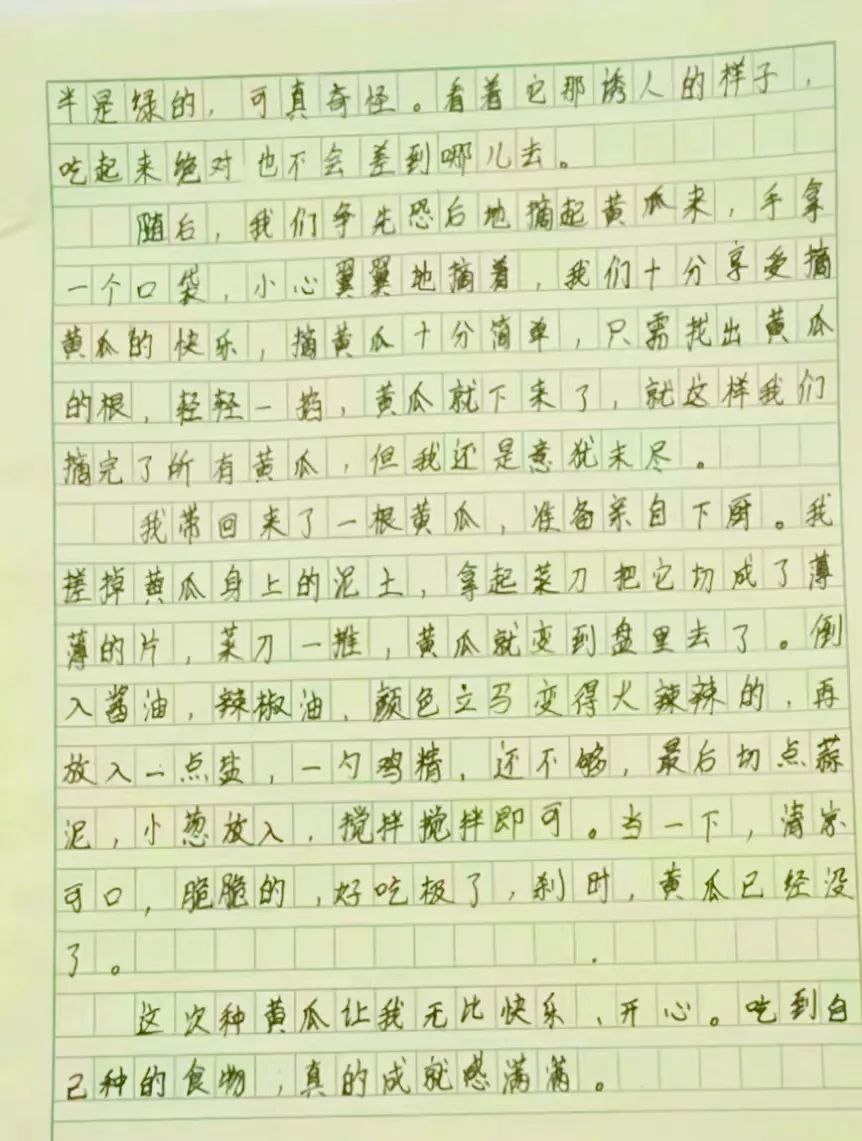 半是绿的，可真奇怪。看着它那诱人的样子，
吃起来绝对也不会差到哪儿去。
随后，我们争先恐后地摘起黄瓜来，手拿
一个口袋，小心翼翼地摘着，我们十分享受摘
黄瓜的快乐，摘黄瓜十分简单，只需找出黄瓜
的根，轻轻一掐，黄瓜就下来了，就这样我们
摘完了所有黄瓜，但我还是意犹未尽。
我带回来了一根黄瓜，准备亲自下厨。我
搓掉黄瓜身上的泥土，拿起菜刀把它切成了薄
薄的片，菜刀一推，黄瓜就变到盘里去了。倒
入酱油，辣椒油，颜色立马变得火辣辣的，再
放入一点盐，一勺鸡精，还不够，最后切点蒜
泥，小葱放入，搅拌搅拌即可。当一下，清凉
可口，脆脆的，好吃极了，刹时，黄瓜已经没
了。
这次种黄瓜让我无比快乐、开心。吃到自
己种的食物，真的成就感满满。